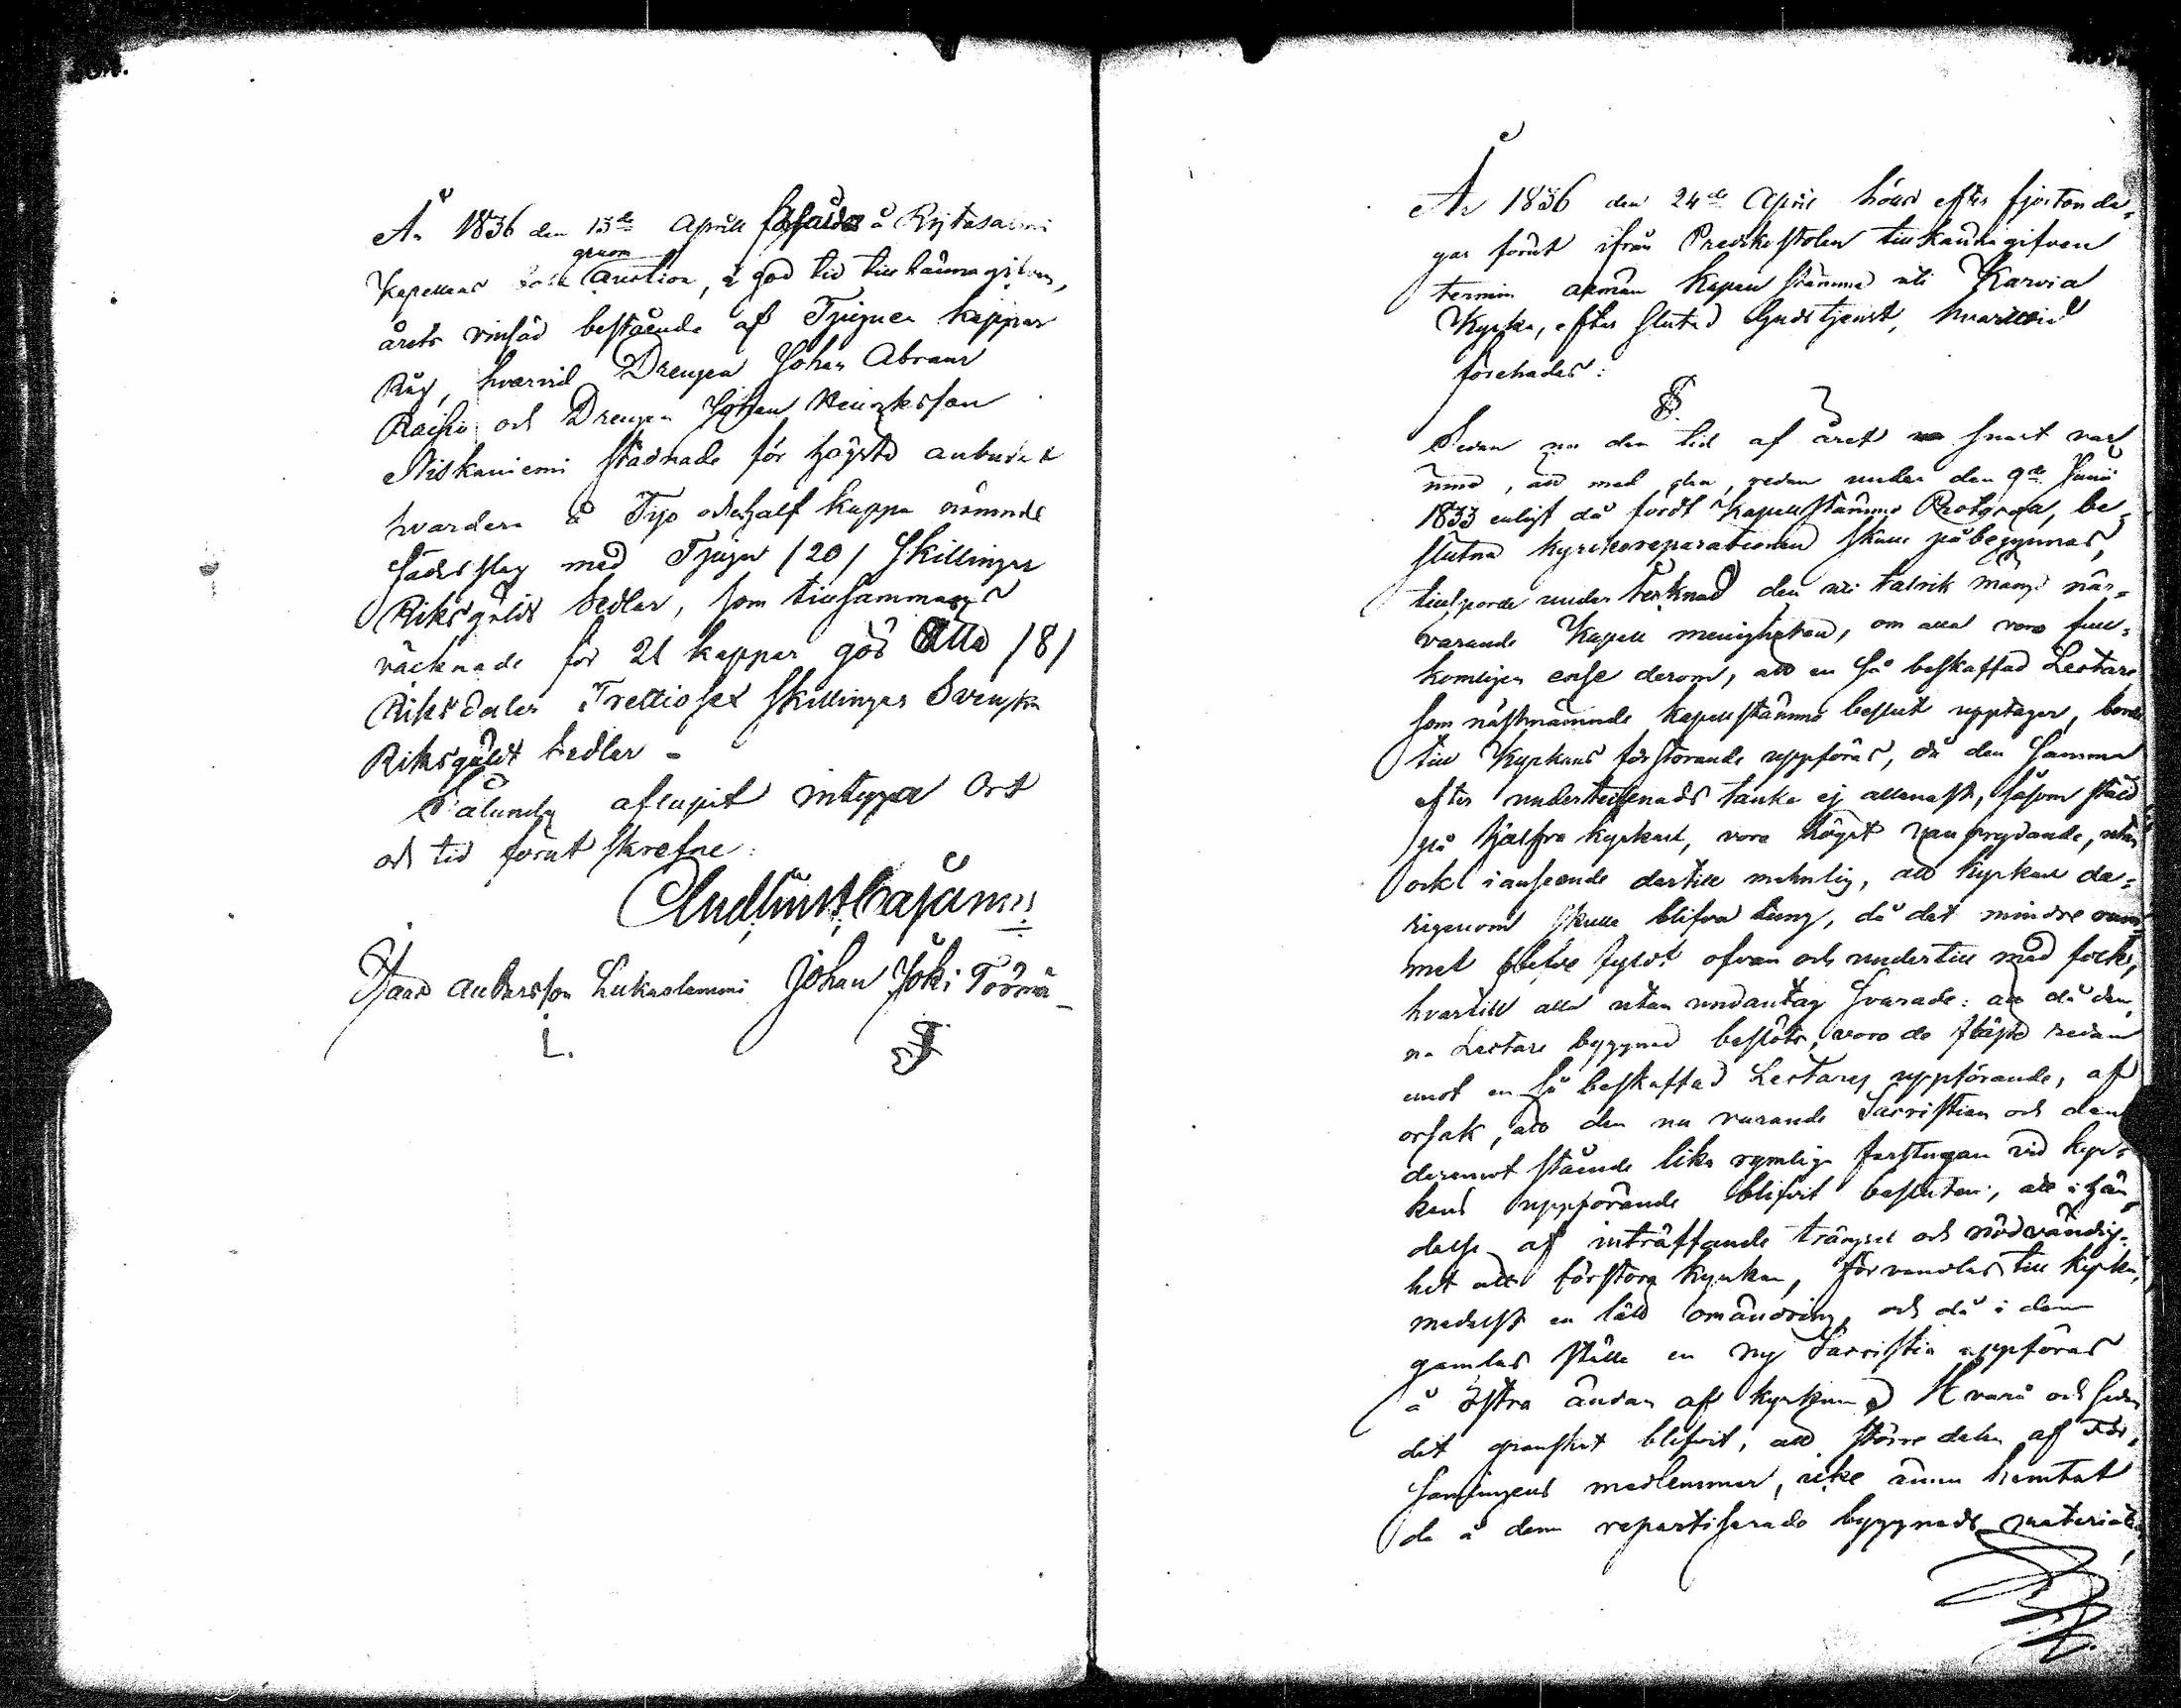 År 1836 den 13de April å Rytäsalmi
genom
Kapellens Auction, i god tid tillkännagifven,
årets vinsäd bestående af Tjuguen kappar
Råg, hvarvid Drengen Johan Abrams
Raiskio och Drengen Johan Henriksson
Niskaniemi stadnade för högsta anbudet
hvardera å Tijo och half kappa nämnde
Sädesslag med Tjugu /20/ Skillingar
Riksgälds Sedlar, som tillsammans
räcknade för 21 kappar gör Åtta /8/
Riksdaler Trettiosex Skillingar Svenska
Riksgälds Sedlar -
Sålunda aflupit intyga Ort
och tid förut skrefne:
Cajanus
Isaac Andersson Lukaslammi Johan Joki Törmä
L.
År 1836 den 24de April hölls efter fjorton da-
gar förut ifrån Predikstolen tillkännagifven
termin allmän Kapell stämma uti Karvia
Kyrka, efter slutad Gudstjenst, hvarvid
förehades:
§.
Sedan nu den tid af året snart var
inne, att med den, redan under den 9de Junii
1833 enligt då fördt Kapellstämmo Protocoll, be-
slutna Kyrkoreparationen skulle påbegynnas,
tillsporde undertecknad den uti talrik mängd när-
varande Kapell menigheten, om alla voro full-
komligen ense derom, att en så beskaffad Lectare
som nästnämnde Kapellstämmo beslut upptager, borde
till Kyrkans förstorande uppföras, då den samma
efter undertecknads tanke ej allenast, såsom ställd
på sjelfva kyrkan, vore högst vanprydande, utan
ock i anseende dertill mehnlig, att kyrkan de-
rigenom skulle blifva tung, då det mindre rum-
met blefve fyldt ofvan och undertill med folk,
hvartill alla utan undantag svarade: att då den-
na Lectare byggnad beslöts, voro de fläste redan
emot en så beskaffad Lectares uppförande, af
orsak, att den nu varande Sacristian och den
deremot stående lika rymliga farstugan vid kyr-
kans uppförande blifvit besluten, att i hän-
delse af inträffande trängsel och nödvändig-
het att förstora kyrkan, förvandlas till kyrka,
medelst en lätt omändring, och då i dem
gamlas ställe en ny Sacristia uppföras
å östra ändan af kyrkan. Hvarå och sedan
det granskat blifvit, att större delen af För-
samlingens medlemmar, icke ännu hemtat
de å dem repartiserade byggnads materialier,